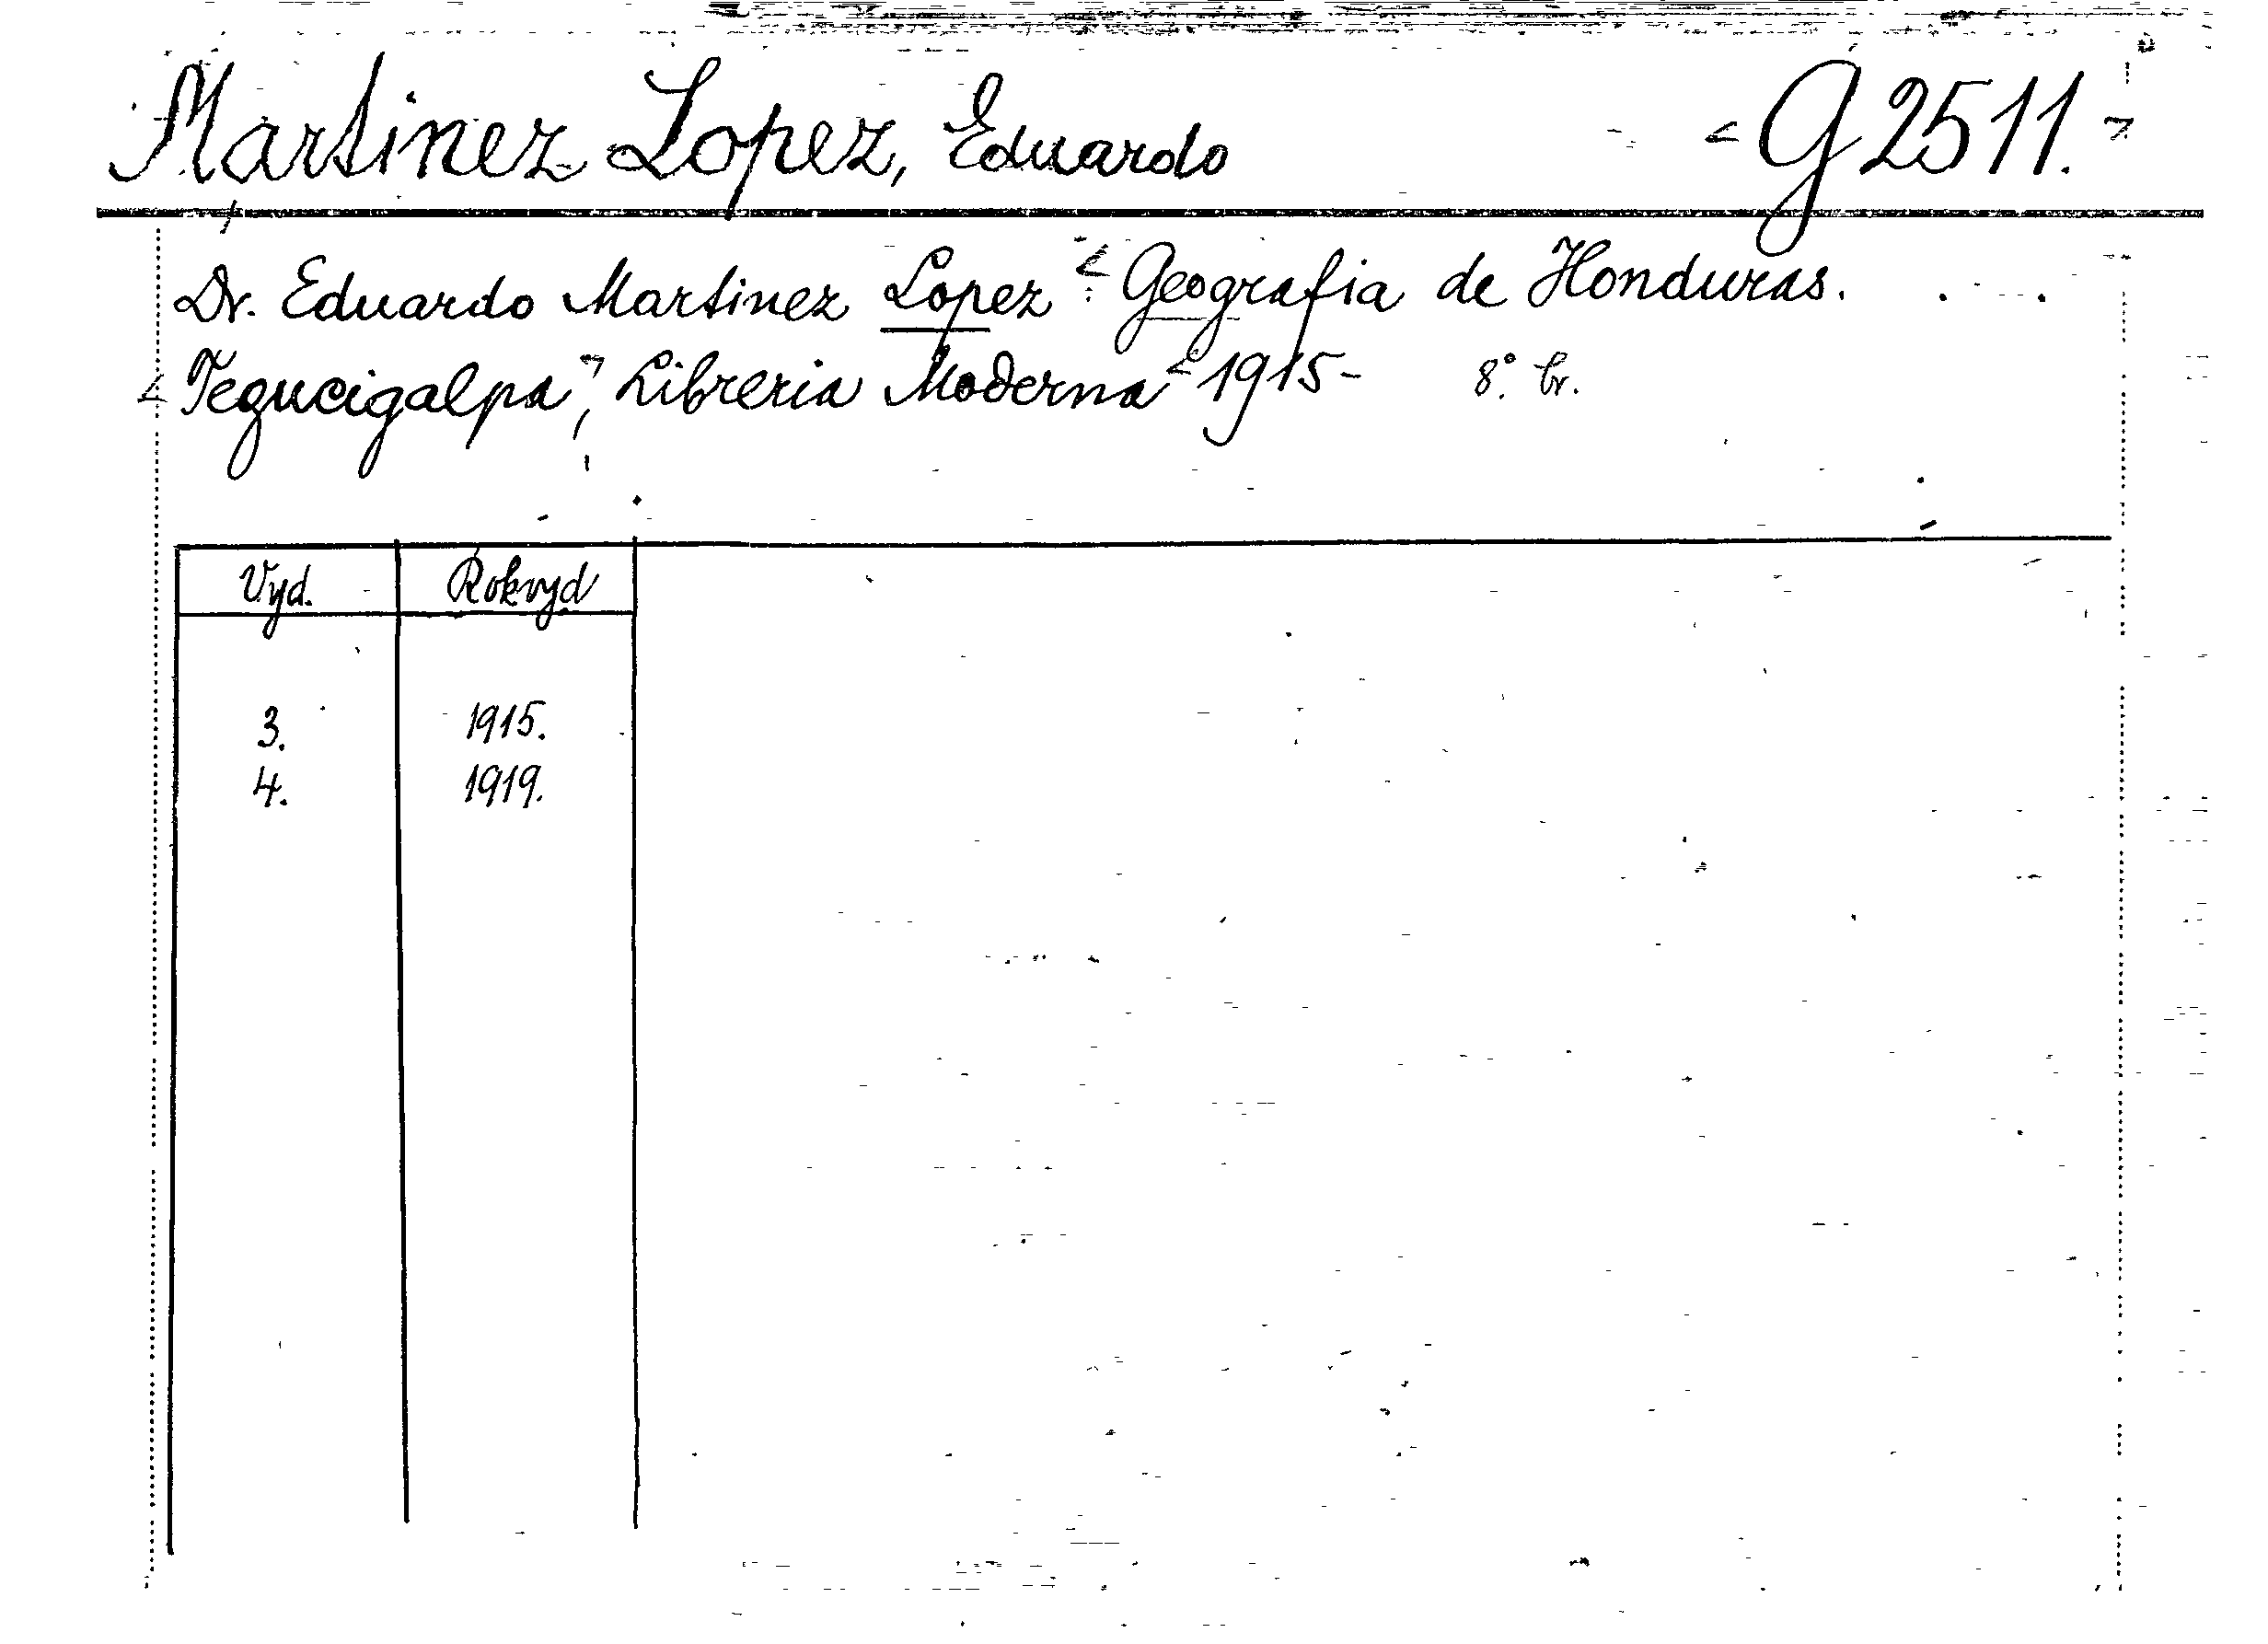 Martinez Lopez, Eduardo G 2511.
Dr. Eduardo Martinez Lopez : Geografia de Honduras. . .
Tegucigalpa, Libreria Moderna 1915- 8° br.
Vyd. Rok vyd
3. 1915.
4. 1919.